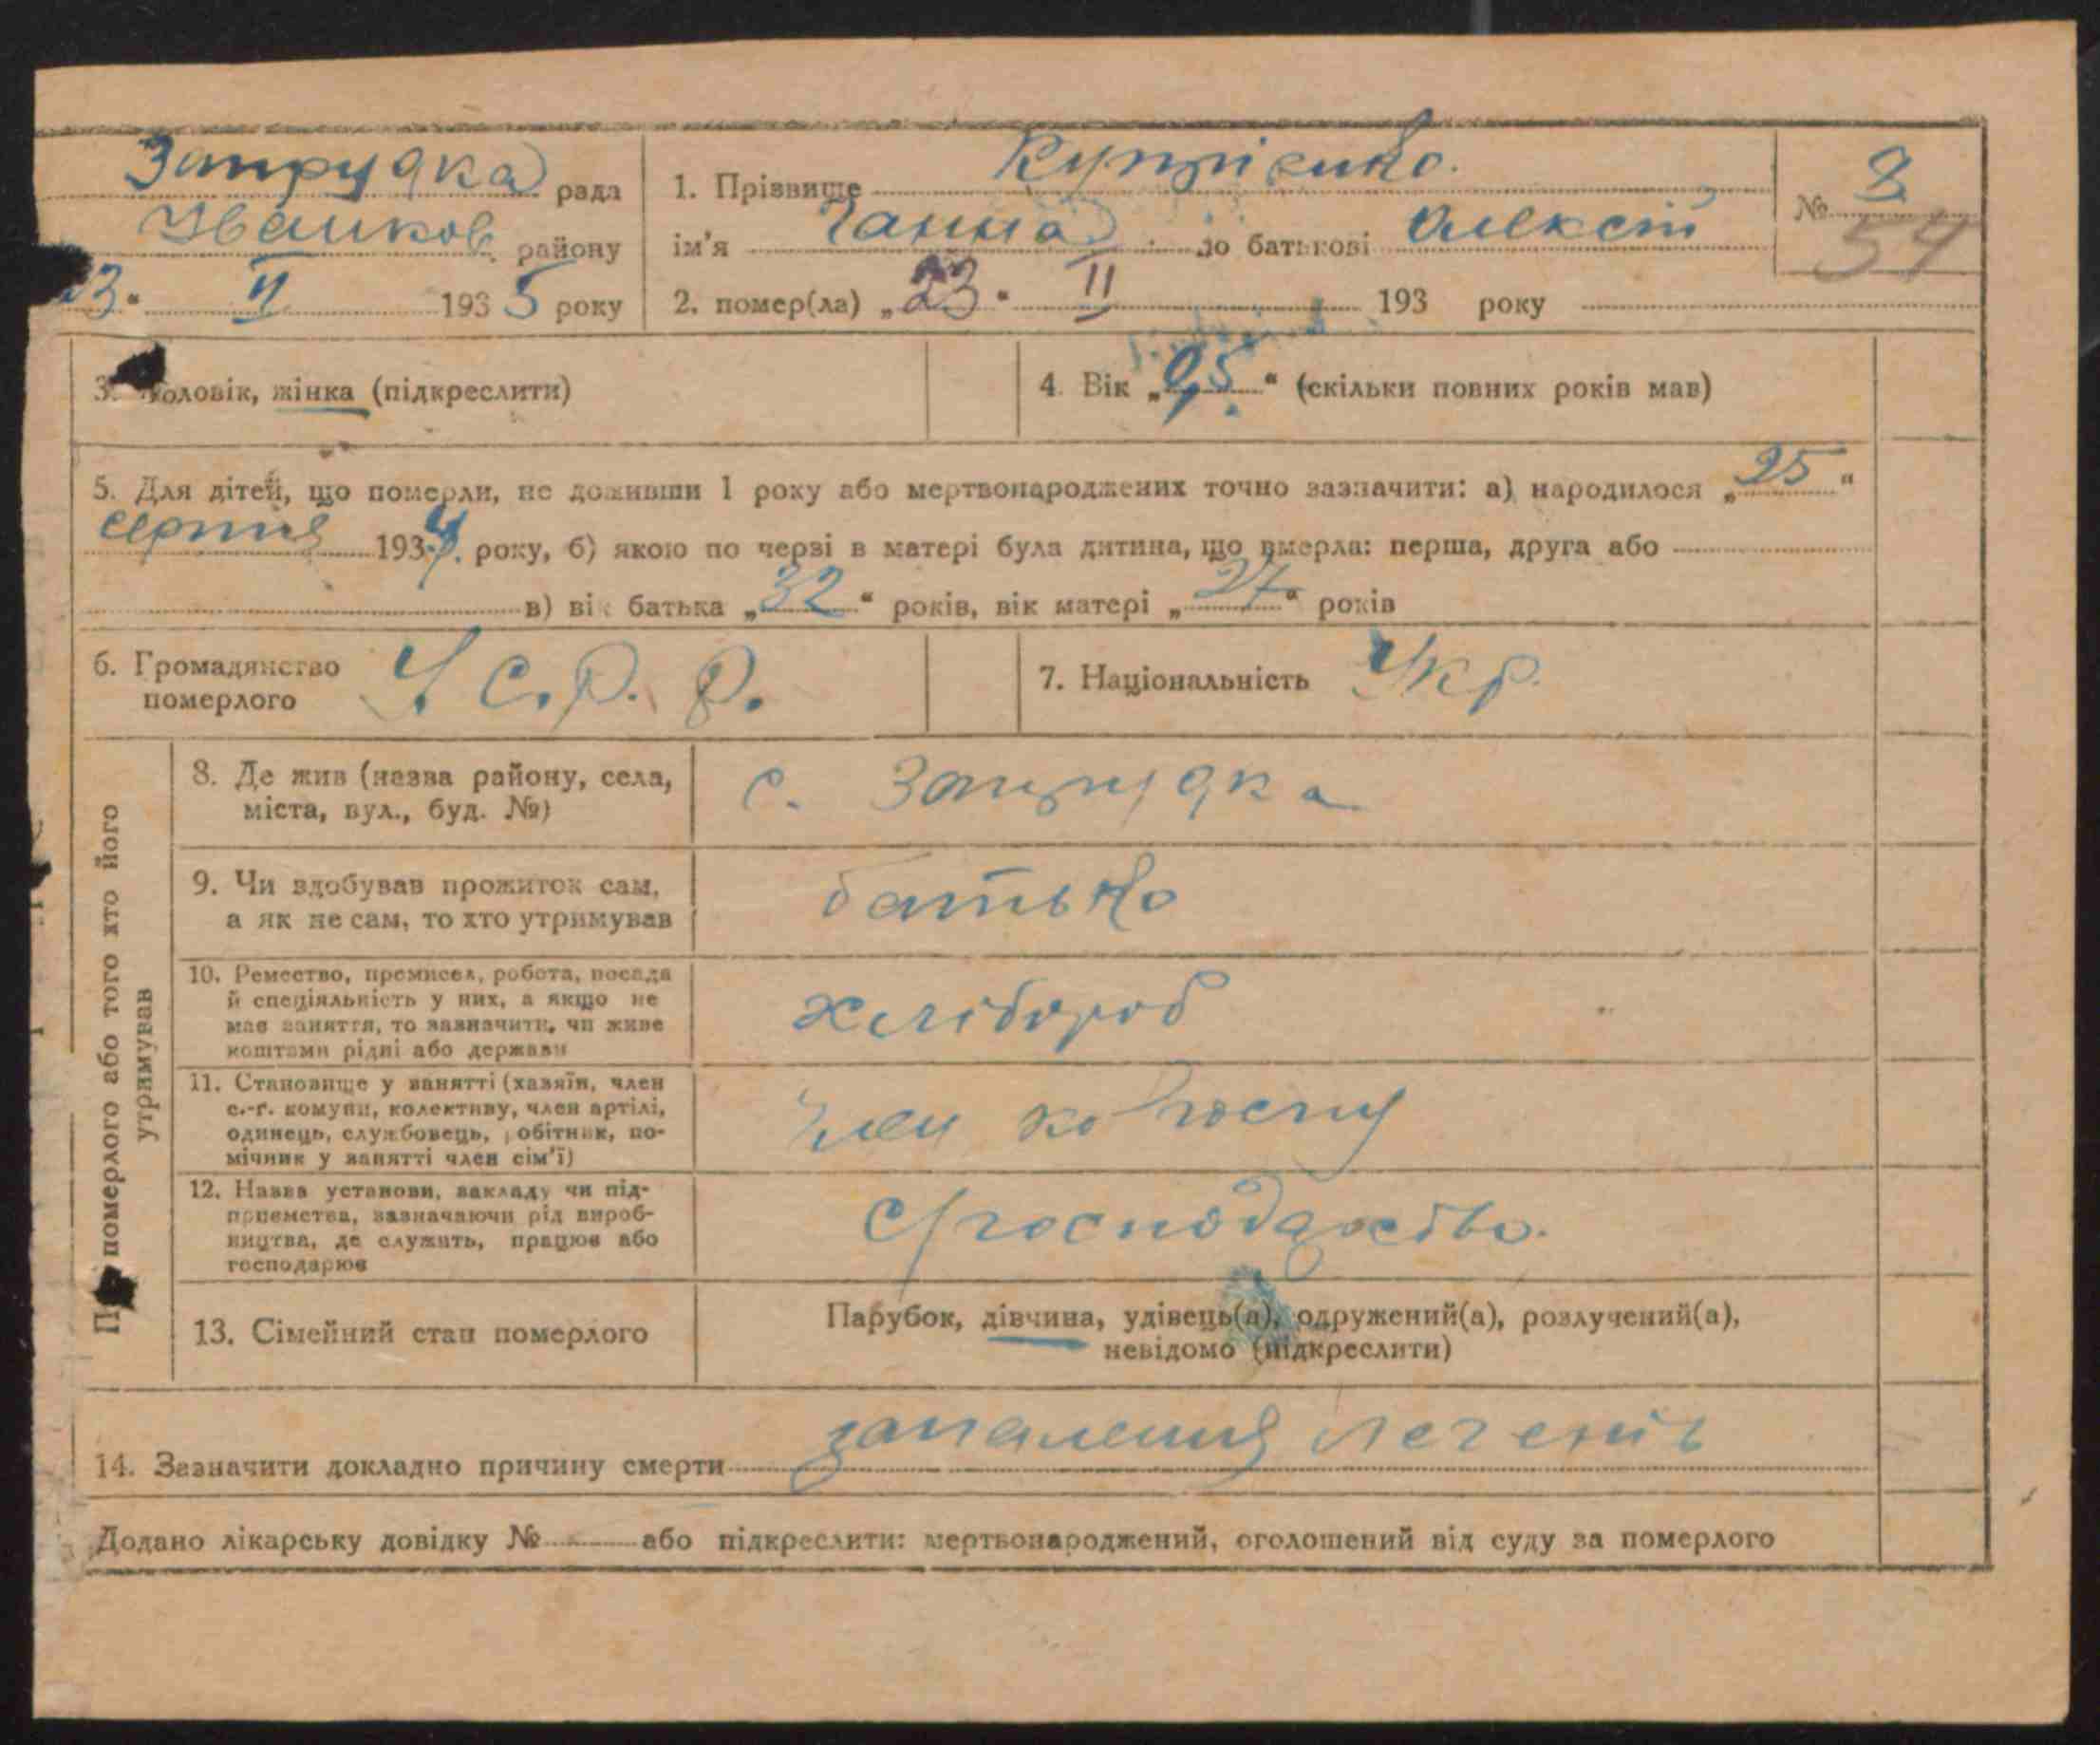 Запрудка рада
Іванков. району
23 " II 1935 року
1. Прізвище Купрієнко.
№ 8
54
ім'я Ганна по батькові Олексій
2. помер(ла) „23" II 193 року
3. Чоловік, жінка (підкреслити)
4. Вік „0,5" (скільки повних років мав)
5. Для дітей, що померли, не доживши 1 року або мертвонароджених точно зазначити: а) народилося „25"
серпня 1934 р. року, б) якою по черзі в матері була дитина, що вмерла: перша, друга або
в) вік батька „32" років, вік матері „27" років
6. Громадянство
померлого
У С. Р. Р.
7. Національність Укр.
Про померлого або того хто його
утримував
8. Де жив (назва району, села,
міста, вул., буд. №)
с. Запрудка
9. Чи здобував прожиток сам,
а як не сам, то хто утримував
батько
10. Ремество, промисел, робота, посада
й спеціяльність у них, а якщо не
мав заняття, то зазначити, чи живе
коштами рідні або держави
хлібороб
11. Становище у занятті (хазяїн, член
с.-г. комуни, колективу, член артілі,
одинець, службовець, робітник, по-
мічник у занятті член сім'ї)
член колгоспу
12. Назва установи, закладу чи під-
приємства, зазначаючи рід вироб-
ництва, де служить, працює або
господарює
С/господарство.
13. Сімейний стан померлого
Парубок, дівчина, удівець(а), одружений(а), розлучений(а),
невідомо (підкреслити)
14. Зазначити докладно причину смерти запалення легенів
Додано лікарську довідку № або підкреслити: мертвонароджений, оголошений від суду за померлого